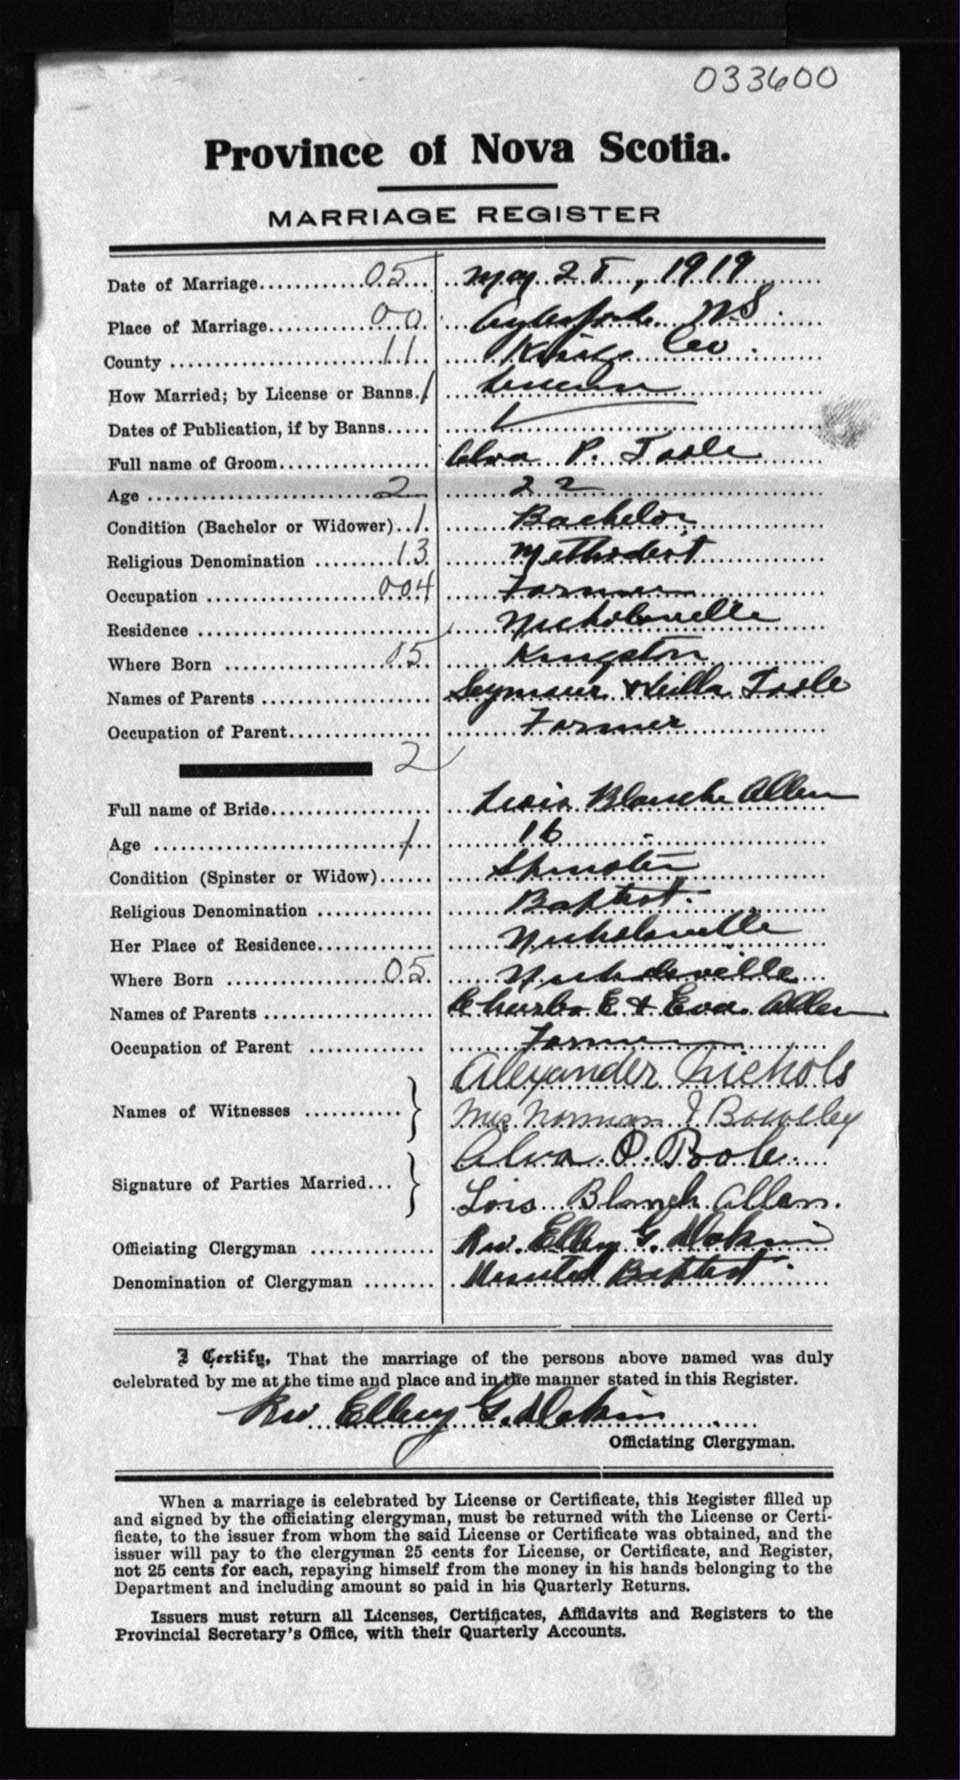 033600
Province of Nova Scotia.
MARRIAGE REGISTER
Date of Marriage............05... May 28, 1919
Place of Marriage............00. Aylesford N.S.
County ............11.. Kings Co.
How Married; by License or Banns./ License
Dates of Publication, if by Banns.....
Full name of Groom................ Alva P. Toole
Age ............2.. 22
Condition (Bachelor or Widower)..1. Bachelor
Religious Denomination .........13. Methodist
Occupation ............004 Farmer
Residence ............ Nicholsville
Where Born ............05. Kingston
Names of Parents ............ Seymour & Toole
Occupation of Parent............ Farmer
2
Full name of Bride............ Lois Blanche Allen
Age ............1.. 16
Condition (Spinster or Widow)...... Spinster
Religious Denomination ............ Baptist.
Her Place of Residence............ Nicholsville
Where Born ............05. Nicholsville
Names of Parents ............ Charles E & Eva Allen
Occupation of Parent ............ Farmer
Alexander Nichols
Names of Witnesses ............}
Mrs Norman J Bowlby
Alva P. Toole
Signature of Parties Married... }
Lois Blanch Allan.
Officiating Clergyman ............ Rev. Ellery G. Dakin
Denomination of Clergyman ........ United Baptist.
I Certify, That the marriage of the persons above named was duly
celebrated by me at the time and place and in the manner stated in this Register.
Rev Ellery G. Dakin
Officiating Clergyman.
When a marriage is celebrated by License or Certificate, this Register filled up
and signed by the officiating clergyman, must be returned with the License or Certi-
ficate, to the issuer from whom the said License or Certificate was obtained, and the
issuer will pay to the clergyman 25 cents for License, or Certificate, and Register,
not 25 cents for each, repaying himself from the money in his hands belonging to the
Department and including amount so paid in his Quarterly Returns.
Issuers must return all Licenses, Certificates, Affidavits and Registers to the
Provincial Secretary's Office, with their Quarterly Accounts.